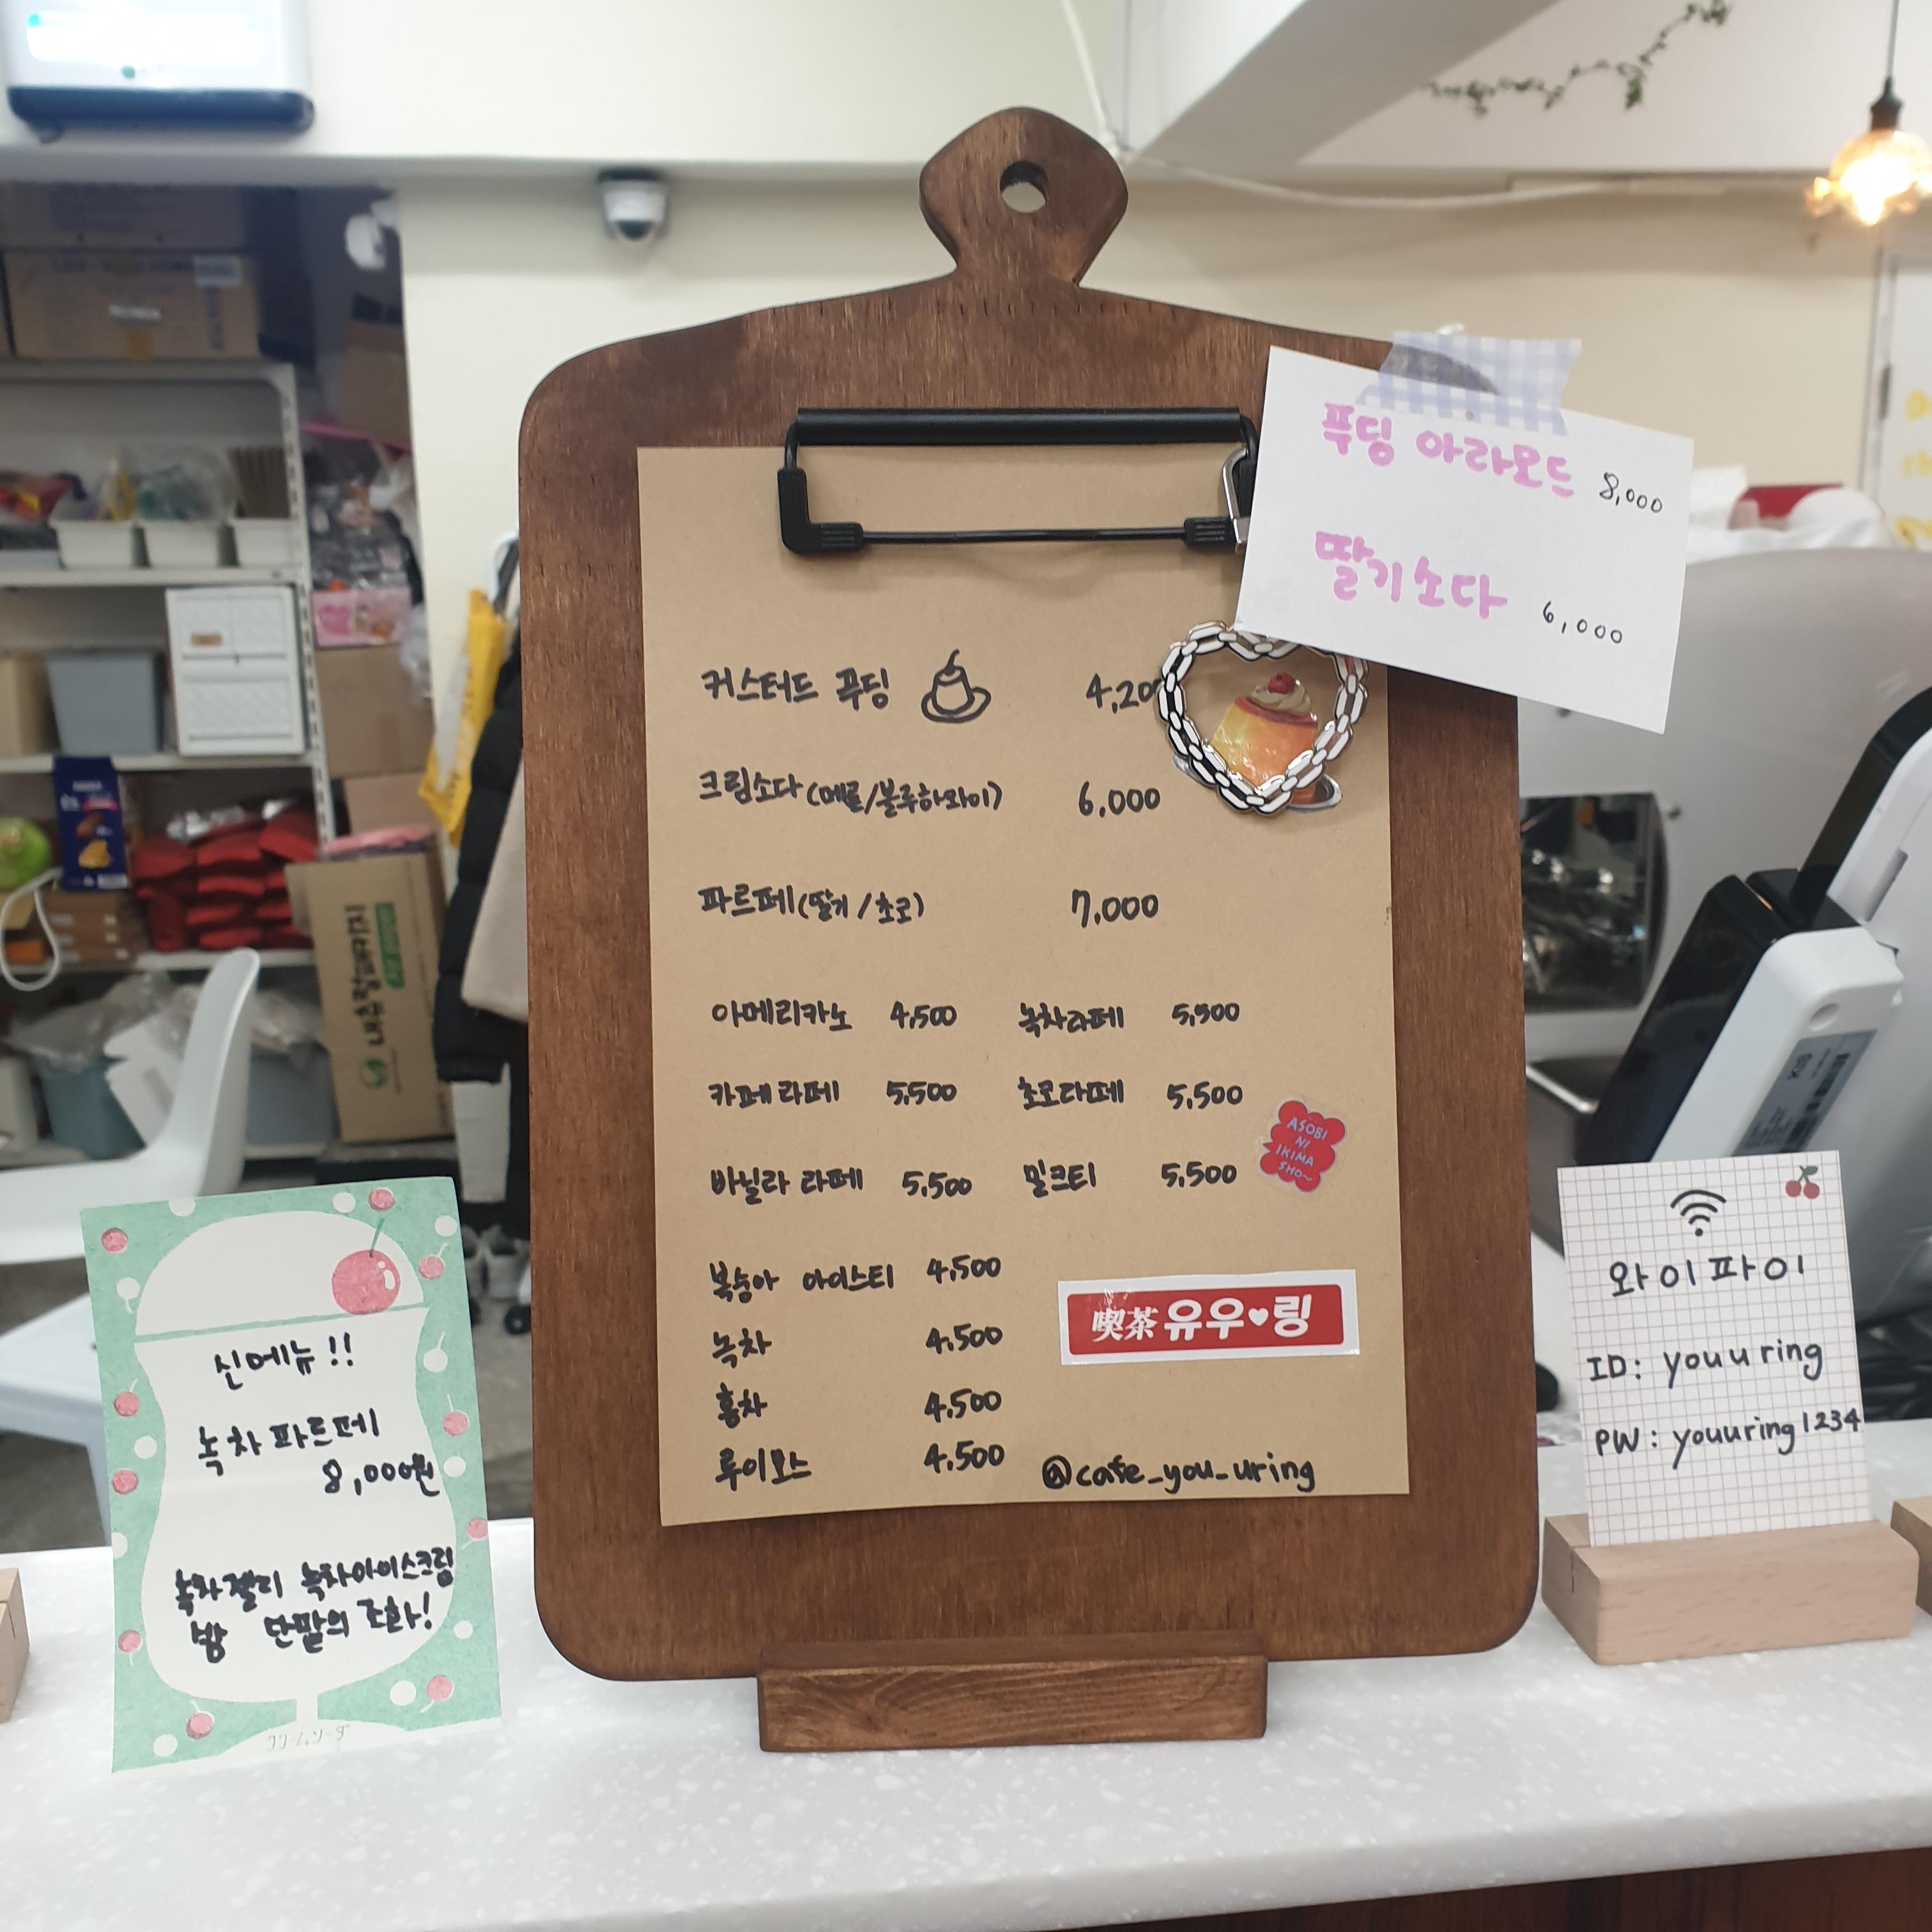 푸딩 아라모드 8,000
딸기소다 6,000
커스터드 푸딩 4,20
크림소다 (메론/블루하와이) 6,000
파르페 (딸기/초코) 7,000
아메리카노 4,500 녹차라떼 5,500
카페라떼 5,500 초코라떼 5,500
바닐라 라떼 5,500 밀크티 5,500
ASOBI
NI
IKIMA
SHO~
복숭아 아이스티 4,500
녹차 4,500
홍차 4,500
루이보스 4,500
喫茶 유우♥링
@cafe_you_uring
신메뉴!!
녹차 파르페
8,000원
녹차젤리 녹차아이스크림
밤 단팥의 조화!
クリームソーダ
와이파이
ID: youuring
PW: youuring1234
내츄럴패키지